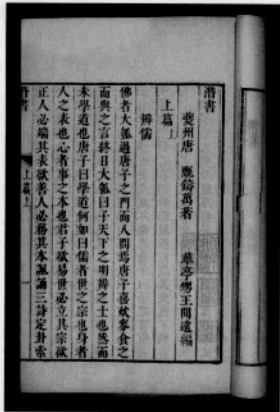 潛書
夔州唐 甄鑄萬著 華亭 王聞遠編
上篇上
辨儒
佛者大瓠過唐子之門而入問焉唐子喜炊麥食之
而與之言終日大瓠曰子天下之明辨之士也然而
未學道也唐子曰學道何如曰儒者世之宗也身者
人之表也心者事之本也君子欲易世必立其宗欲
正人必端其表欲善人必務其本諷誦三詩定卦索
潛書 上篇上 一